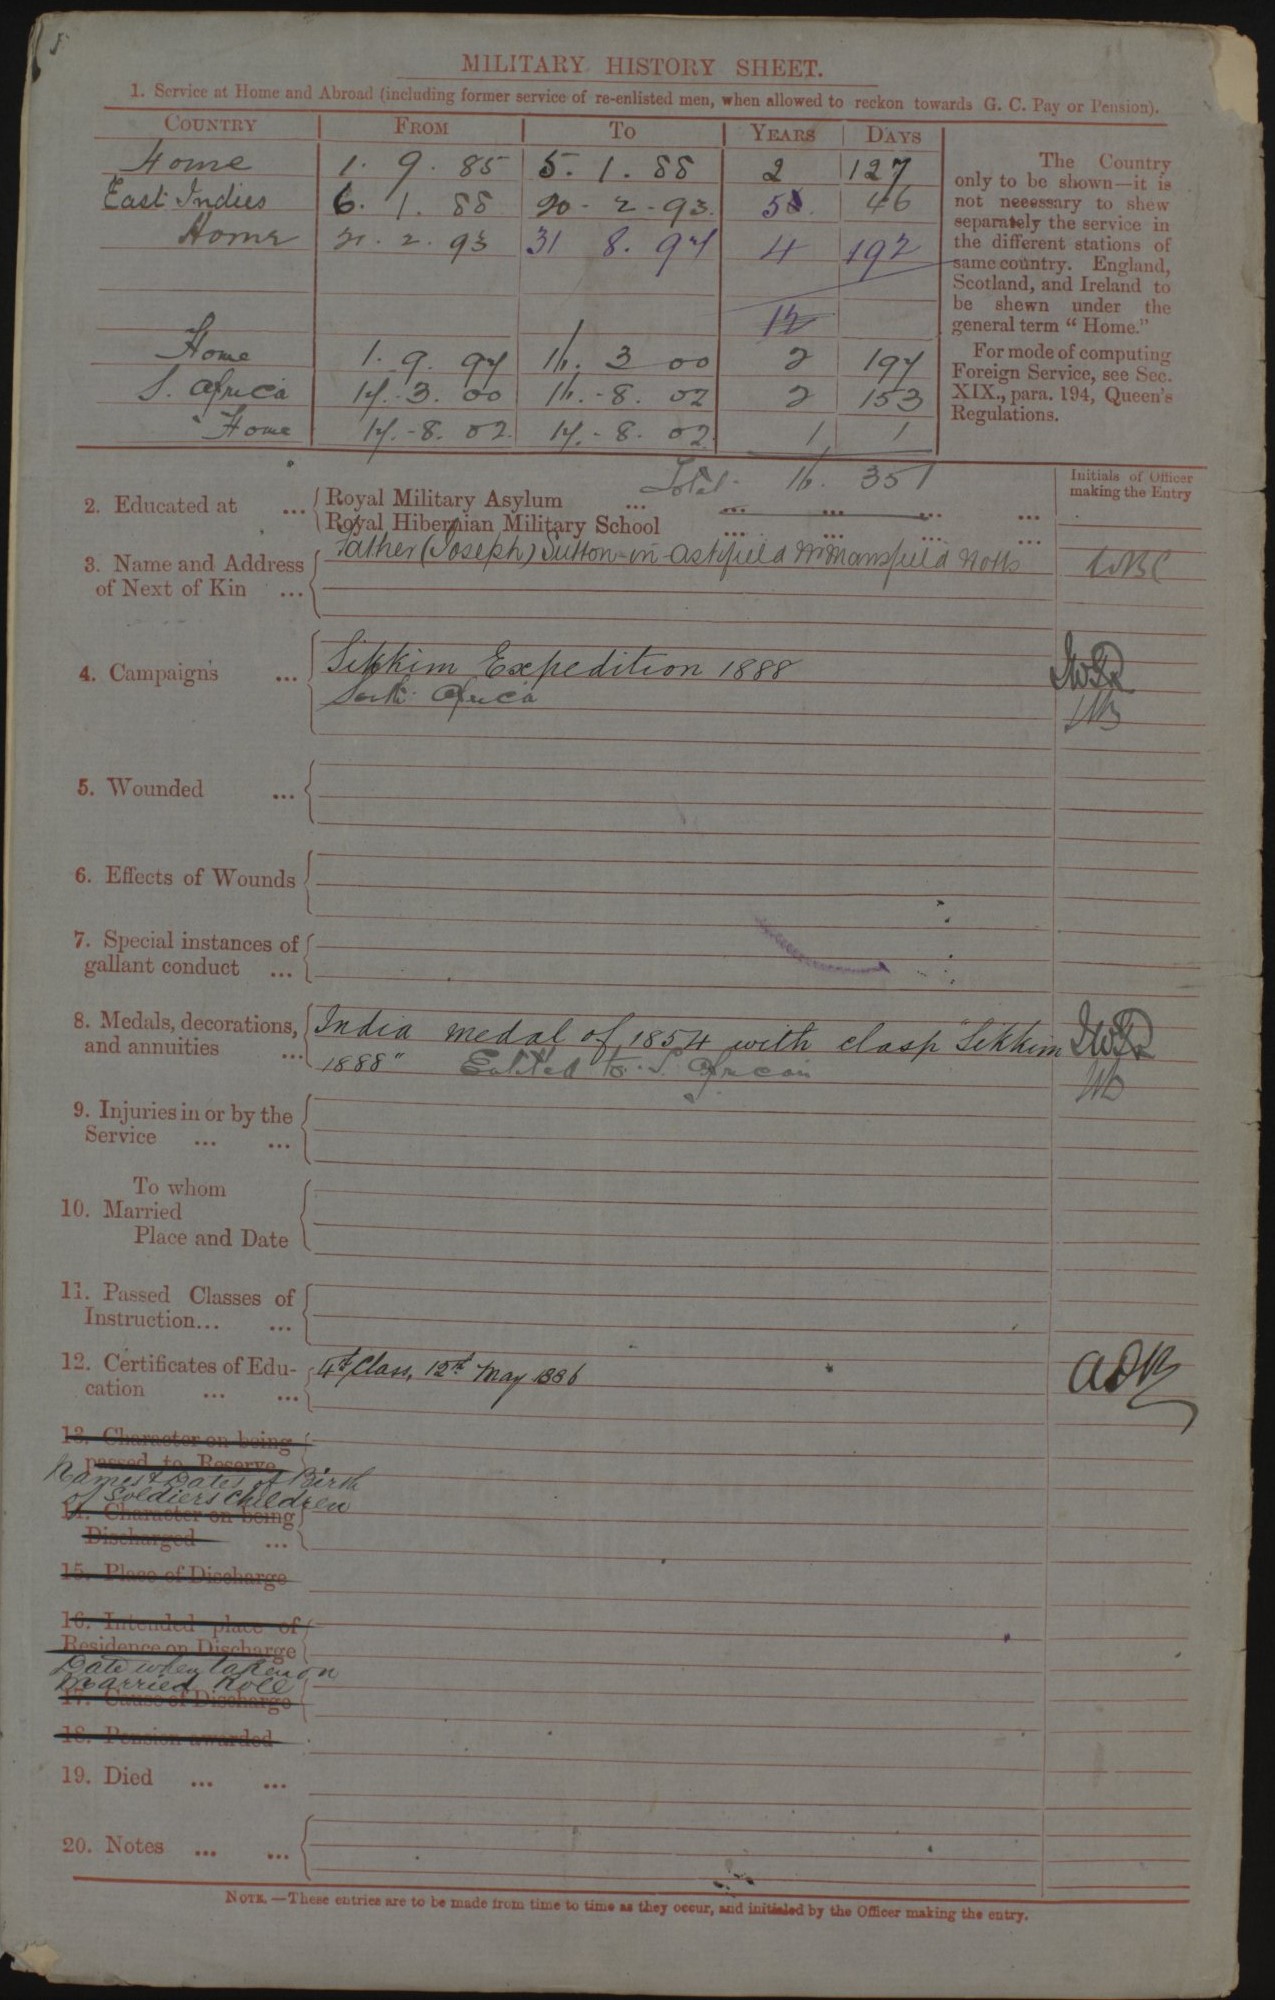 MILITARY HISTORY SHEET.
1. Service at Home and Abroad (including former service of re-enlisted men, when allowed to reckon towards G. C. Pay or Pension).
COUNTRY FROM TO YEARS DAYS
Home 1. 9. 85 5. 1. 88 2 127
East Indies 6. 1. 88 20 - 2 - 93. 5 46
Home 21. 2. 93 31 8. 97 4 192
12
Home 1. 9. 97 16. 3 00 2 197
S. Africa 17. 3. 00 16. - 8. 02 2 153
Home 17. - 8. 02. 17. - 8. 02. 1
Total 16. 351
The Country
only to be shown—it is
not necessary to shew
separately the service in
the different stations of
same country. England,
Scotland, and Ireland to
be shewn under the
general term "Home."
For mode of computing
Foreign Service, see Sec.
XIX., para. 194, Queen's
Regulations.
Initials of Officer
making the Entry
2. Educated at ... Royal Military Asylum ... ... ... ... ...
Royal Hibernian Military School ... ... ... ...
3. Name and Address
of Next of Kin ...
Father (Joseph) Sutton-in-Ashfield Nr Mansfield Notts
4. Campaigns ... Sikkim Expedition 1888
South Africa
5. Wounded ...
6. Effects of Wounds
7. Special instances of
gallant conduct ...
8. Medals, decorations,
and annuities ...
India medal of 1854 with clasp "Sikkim
1888" Entitled to S. African
9. Injuries in or by the
Service ... ...
To whom
10. Married
Place and Date
11. Passed Classes of
Instruction... ...
12. Certificates of Edu-
cation ... ...
4th Class, 12th May 1886
13. Character on being
passed to Reserve
Names & Dates of Birth
of Soldiers Children
14. Character on being
Discharged ...
15. Place of Discharge
16. Intended place of
Residence on Discharge
Date when taken on
Married Roll
17. Cause of Discharge
18. Pension awarded
19. Died ... ...
20. Notes ... ...
NOTE.—These entries are to be made from time to time as they occur, and initialed by the Officer making the entry.